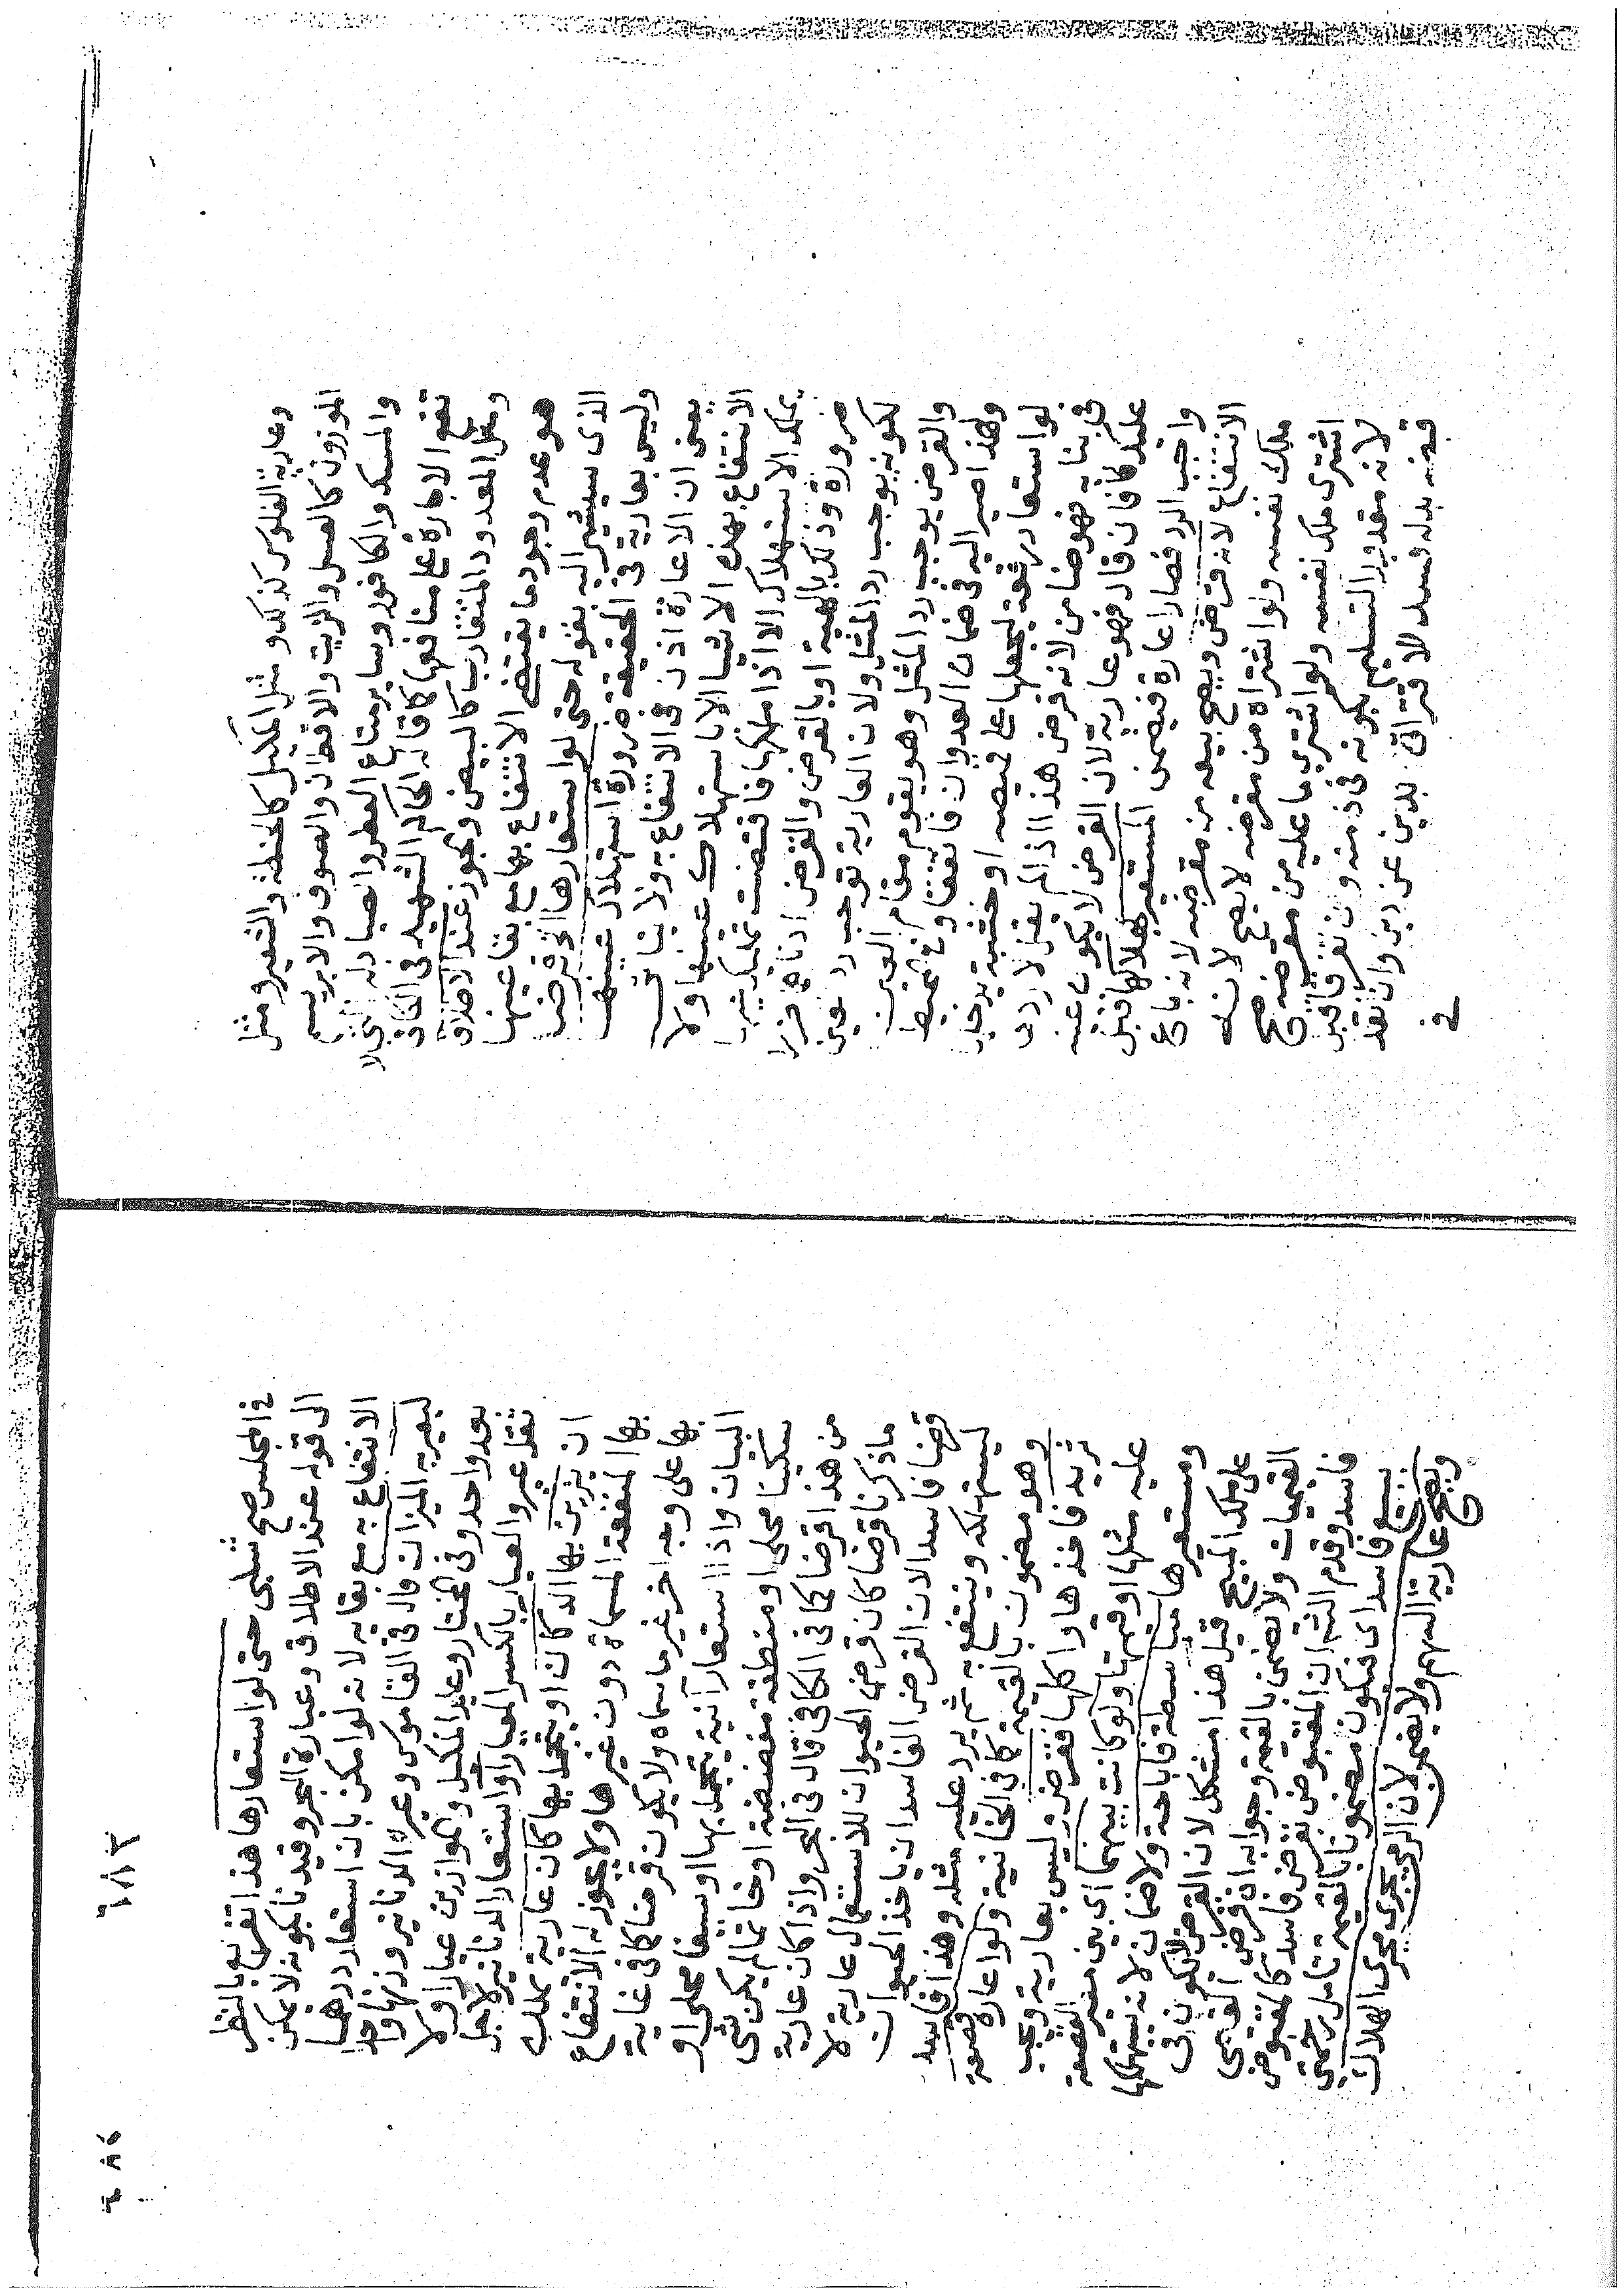 وعارية الفلوس كذلك و مثل المكيل كالحنطة والشعير ومثل
الموزون كالعسل والزيت والاقطان والصوف والابريسم
والمسك والكافور وساير متاع العطر والصيادلة التى لا
تقع الاجارة على منافعها كما قاله الحاكم الشهيد فى الكافى
ومثل المعدود المتقارب كالبيض والجوز عند الاطلاق
هو عدم وجود ما يقتضى الانتفاع بها مع بقا عينها
الذى سيشير اليه بقوله حتى لو استعارها الخ قرضا
وليس بعارية فى الحقيقة ضرورة استهلاك عينها
يعنى ان الاعارة اذن فى الانتفاع به ولا يتاتى
الانتفاع بهذه الاشيا الا باستهلاك عينها ولا
يملك الاستهلاك الا اذا ملكها فاقتضت تمليك عينها
ضرورة وذلك بالهبة او بالقرض والقرض ادناهما ضررا
لكونه يوجب رد المثل ولان العارية توجب رد عين
والقرض يوجب رد المثل وهو يقوم مقام العين
ولهذا صير اليه فى ضمان العدوان فاتفقا وفى المحيط
لو استعار رقعة ليجعلها على قميصه او خشبة يدخلها
فى بنايه فهو ضامن لانه قرض هذا اذا لم يقل لاردن
عليك كما فان قال فهو عارية لان القرض لا يكون عنه
واجب الرد فصار اعارة فيضمن المستعير بهلاكها قبل
الانتفاع لانه قرض ويصح بيعه من مقرضه لانه باع
ملك نفسه ولو اشتراه من مقرضه لا يصح لانه
اشترى ملك نفسه ولو اشترى ما عليه من مقرضه صح
لانه مقدور التسليم بكونه فى ذمته ونقد قبل
قبضه بدله وفسد لافتراق بدين عن دين وان نقد
فى
فى المجلس صح شلبى حتى لو استعارها هذا تفريع بالنظر
الى قوله عند الاطلاق وعبارة البحر وقيدنا بكونه لا يمكن
الانتفاع به مع بقايه لانه لو امكن بان استعار درهما
ليعير به الميزان قال فى القاموس وعير الدنانير وزنها واحدا
بعد واحد وفى المختار وعاير المكيل والموازين عيارا ولا
تقل عير والعيار بالكسر المعيار او استعار الدنانير لاجل
ان يزين بها الدكان او يتجمل بها كان عارية يملك
بها المنفعة المسماة دون غيرها ولا يجوز له الانتفاع
بها على وجه اخر غير ما سماه ولا يكون قرضا كما فى غاية
البيان واذا استعار آنية يتجمل بها او سيفا محلى او
سكينا محلى او منطقة مفضضة او خاتما لم يكن شى
من هذا قرضا كما فى الكافى قال فى البحر واذا كان عارية
ما ذكرنا قرضا كان قرض الحيوان للاستعمال عارية لا
قرضا فاسدا لان القرض الفاسد ان ياخذ الحيوان
ليستهلكه وينتفع به ثم يرد عليه مثله وهذا فاسد
وهو مضمون بالقيمة كما فى الخانية ولو اعاره قصعة
ثريد فاخذها واكلها فقرض وليس بعارية ويجب
عليه مثلها او قيمتها ولو كانت بينهما اى بين معير القصعة
ومستعيرها مباسطة فاباحة ولا ضمان لانه يستهلكها
على ملك المبيح قيل هذا مشكل لان القرض لا يكون فى
القيميات ولا يضمن بالقيمة وجوابه ان قرض القيمى
فاسد وقدم الش ان المقبوض بقرض فاسد كالمقبوض
ببيع فاسد اى فيكون مضمونا بالقيمة تامل رحمتى
ويصح عارية السهم ولا يضمن لان الرمى يجرى مجرى الهلاك
٦٨٣